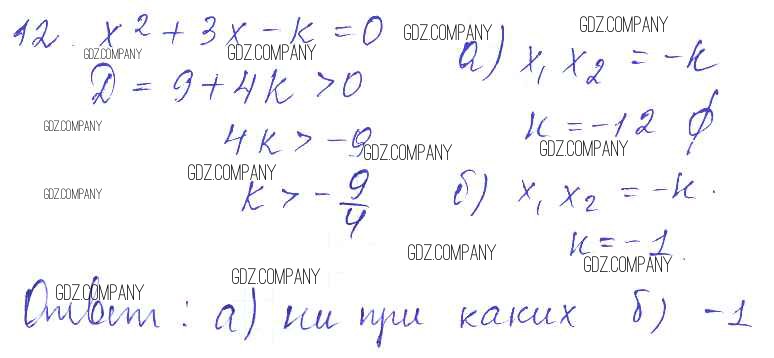 12. x² + 3x - k = 0
D = 9 + 4k > 0
4k > -9
k > -9/4
а) x₁ x₂ = -k
k = -12 ∅
б) x₁ x₂ = -k.
k = -1.
Ответ: а) ни при каких б) -1
GDZ.COMPANY
GDZ.COMPANY
GDZ.COMPANY
GDZ.COMPANY
GDZ.COMPANY
GDZ.COMPANY
GDZ.COMPANY
GDZ.COMPANY
GDZ.COMPANY
GDZ.COMPANY
GDZ.COMPANY
GDZ.COMPANY
GDZ.COMPANY
GDZ.COMPANY